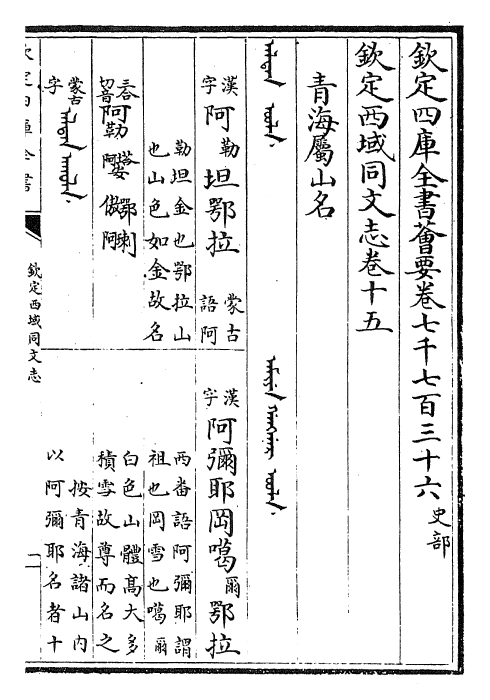 欽定四庫全書薈要卷七千七百三十六 史部
欽定西域同文志卷十五
青海屬山名
漢字 阿勒坦鄂拉 蒙古語阿
勒坦金也鄂拉山
也山色如金故名
三合切音 阿勒
蒙古字
漢字 阿彌耶岡噶爾鄂拉
西番語阿彌耶謂
祖也岡雪也噶爾
白色山體高大多
積雪故尊而名之
按青海諸山内
以阿彌耶名者十
欽定四庫全書
欽定西域同文志
一